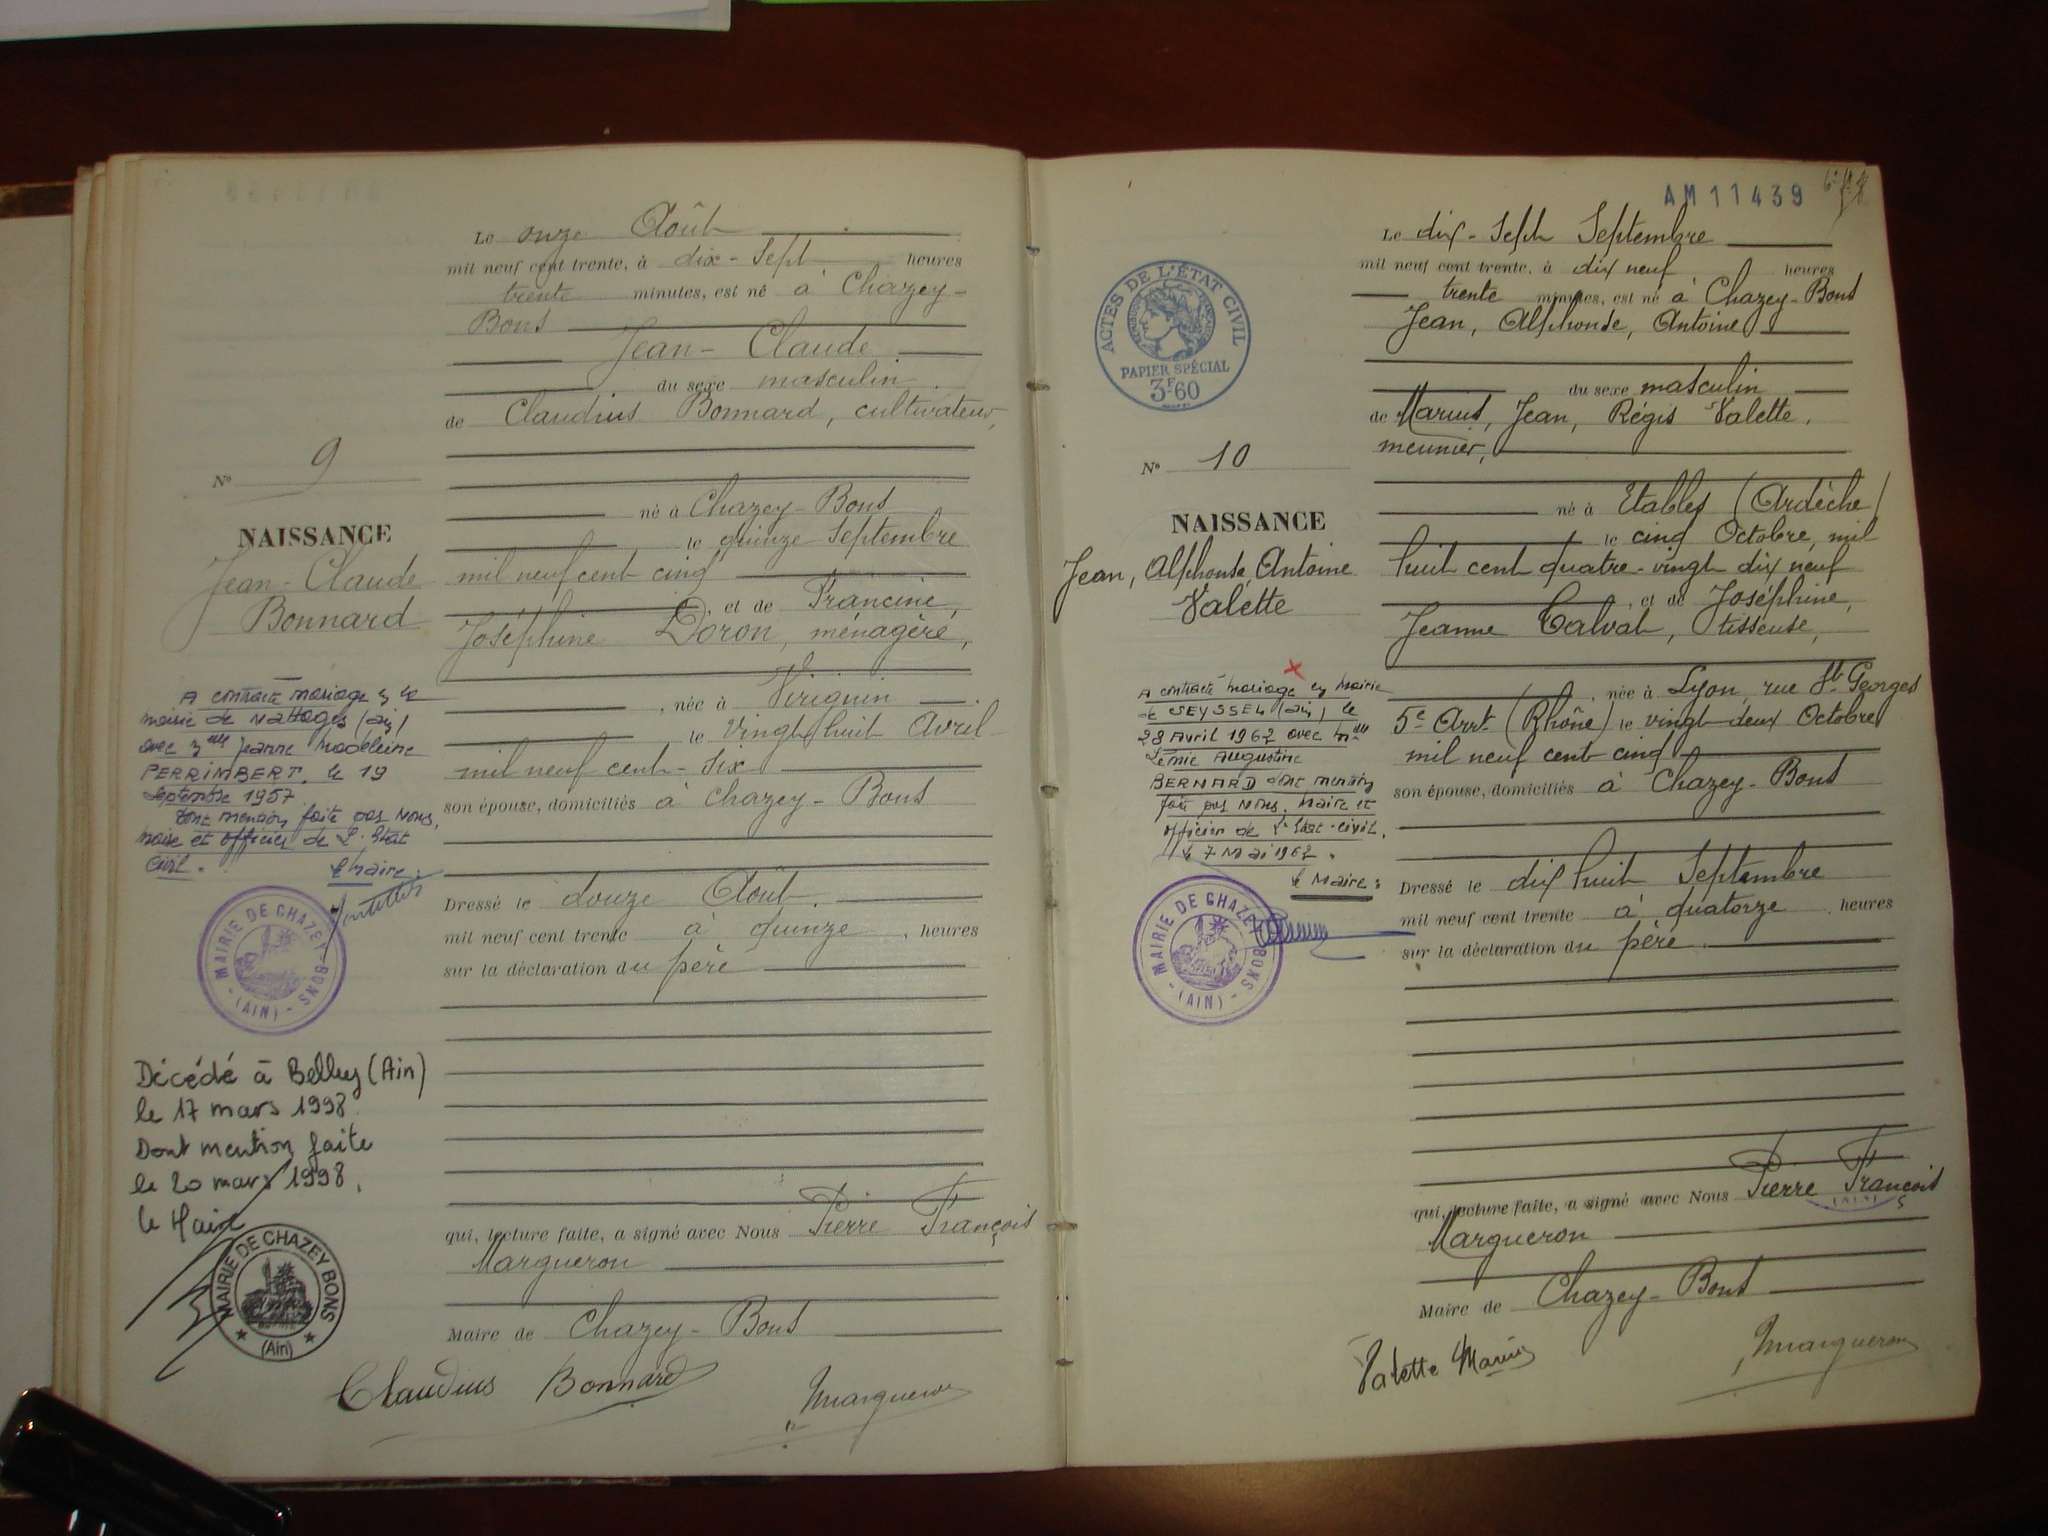 Le onze Août
mil neuf cent trente, à dix-sept heures
trente minutes, est né à Chazey-
Bons
Jean-Claude
du sexe masculin
de Claudius Bonnard, cultivateur,
né à Chazey-Bons
le quinze Septembre
mil neuf cent cinq
, et de Francine,
Joséphine Doron, ménagère,
, née à Virignin
le vingt huit Avril
mil neuf cent-six
son épouse, domiciliés à Chazey-Bons
Dressé le douze Août
mil neuf cent trente à quinze, heures
sur la déclaration du père
qui, lecture faite, a signé avec Nous Pierre François
Margueron
Maire de Chazey-Bons
Claudius Bonnard
Margueron
No 9
NAISSANCE
Jean-Claude
Bonnard
A contracté mariage en la
mairie de Nattages (ain)
avec Melle Jeanne Madeleine
PERRIMBERT, le 19
Septembre 1957
Dont mention faite par Nous,
maire et officier de l'Etat
Civil.
Le Maire:
MAIRIE DE CHAZEY-BONS
(AIN)
Décédé à Belley (Ain)
le 17 mars 1998
Dont mention faite
le 20 mars 1998.
le Maire
MAIRIE DE CHAZEY BONS
(Ain)
AM11439
ACTES DE L'ÉTAT CIVIL
PAPIER SPÉCIAL
3F60
No 10
NAISSANCE
Jean, Alphonse, Antoine
Valette
A contracté mariage en Mairie
de SEYSSEL (ain) le
28 Avril 1962 avec Melle
Augustine
BERNARD dont mention
faite par Nous, Maire et
officier de l'Etat-civil.
le 7 Mai 1962.
Le Maire:
MAIRIE DE CHAZEY-BONS
(AIN)
Le dix-sept Septembre
mil neuf cent trente, à dix neuf heures
trente minutes, est né à Chazey-Bons
Jean, Alphonse, Antoine
du sexe masculin
de Marius, Jean, Régis Valette,
meunier,
né à Etables (Ardèche)
le cinq Octobre, mil
huit cent quatre-vingt dix neuf
, et de Joséphine,
Jeanne Calvat, tisseuse,
, née à Lyon, rue St Georges
5e Arrt (Rhône) le vingt-deux Octobre
mil neuf cent cinq
son épouse, domiciliés à Chazey-Bons
Dressé le dix huit Septembre
mil neuf cent trente à quatorze heures
sur la déclaration du père
qui, lecture faite, a signé avec Nous Pierre François
Margueron
Maire de Chazey-Bons
Valette Marius
Margueron